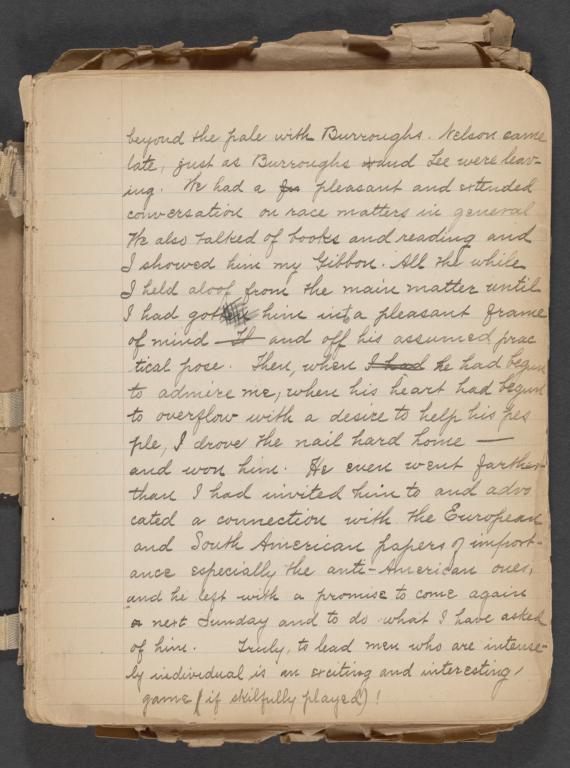 beyond the pale with Burroughs. Nelson came
late, just as Burroughs and Lee were leav-
ing. We had a pleasant and extended
conversation on race matters in general
We also talked of books and reading and
I showed him my Gibbon. All the while
I held aloof from the main matter until
I had got him into a pleasant frame
of mind and off his assumed prac
tical pose. Then, when he had begun
to admire me, when his heart had begun
to overflow with a desire to help his peo
ple, I drove the nail hard home —
and won him. He even went farther
than I had invited him to and advo
cated a connection with the European
and South American papers of import-
ance especially the anti-American ones,
and he left with a promise to come again
next Sunday and to do what I have asked
of him. Truly, to lead men who are intense-
ly individual is an exciting and interesting
game (if skilfully played)!